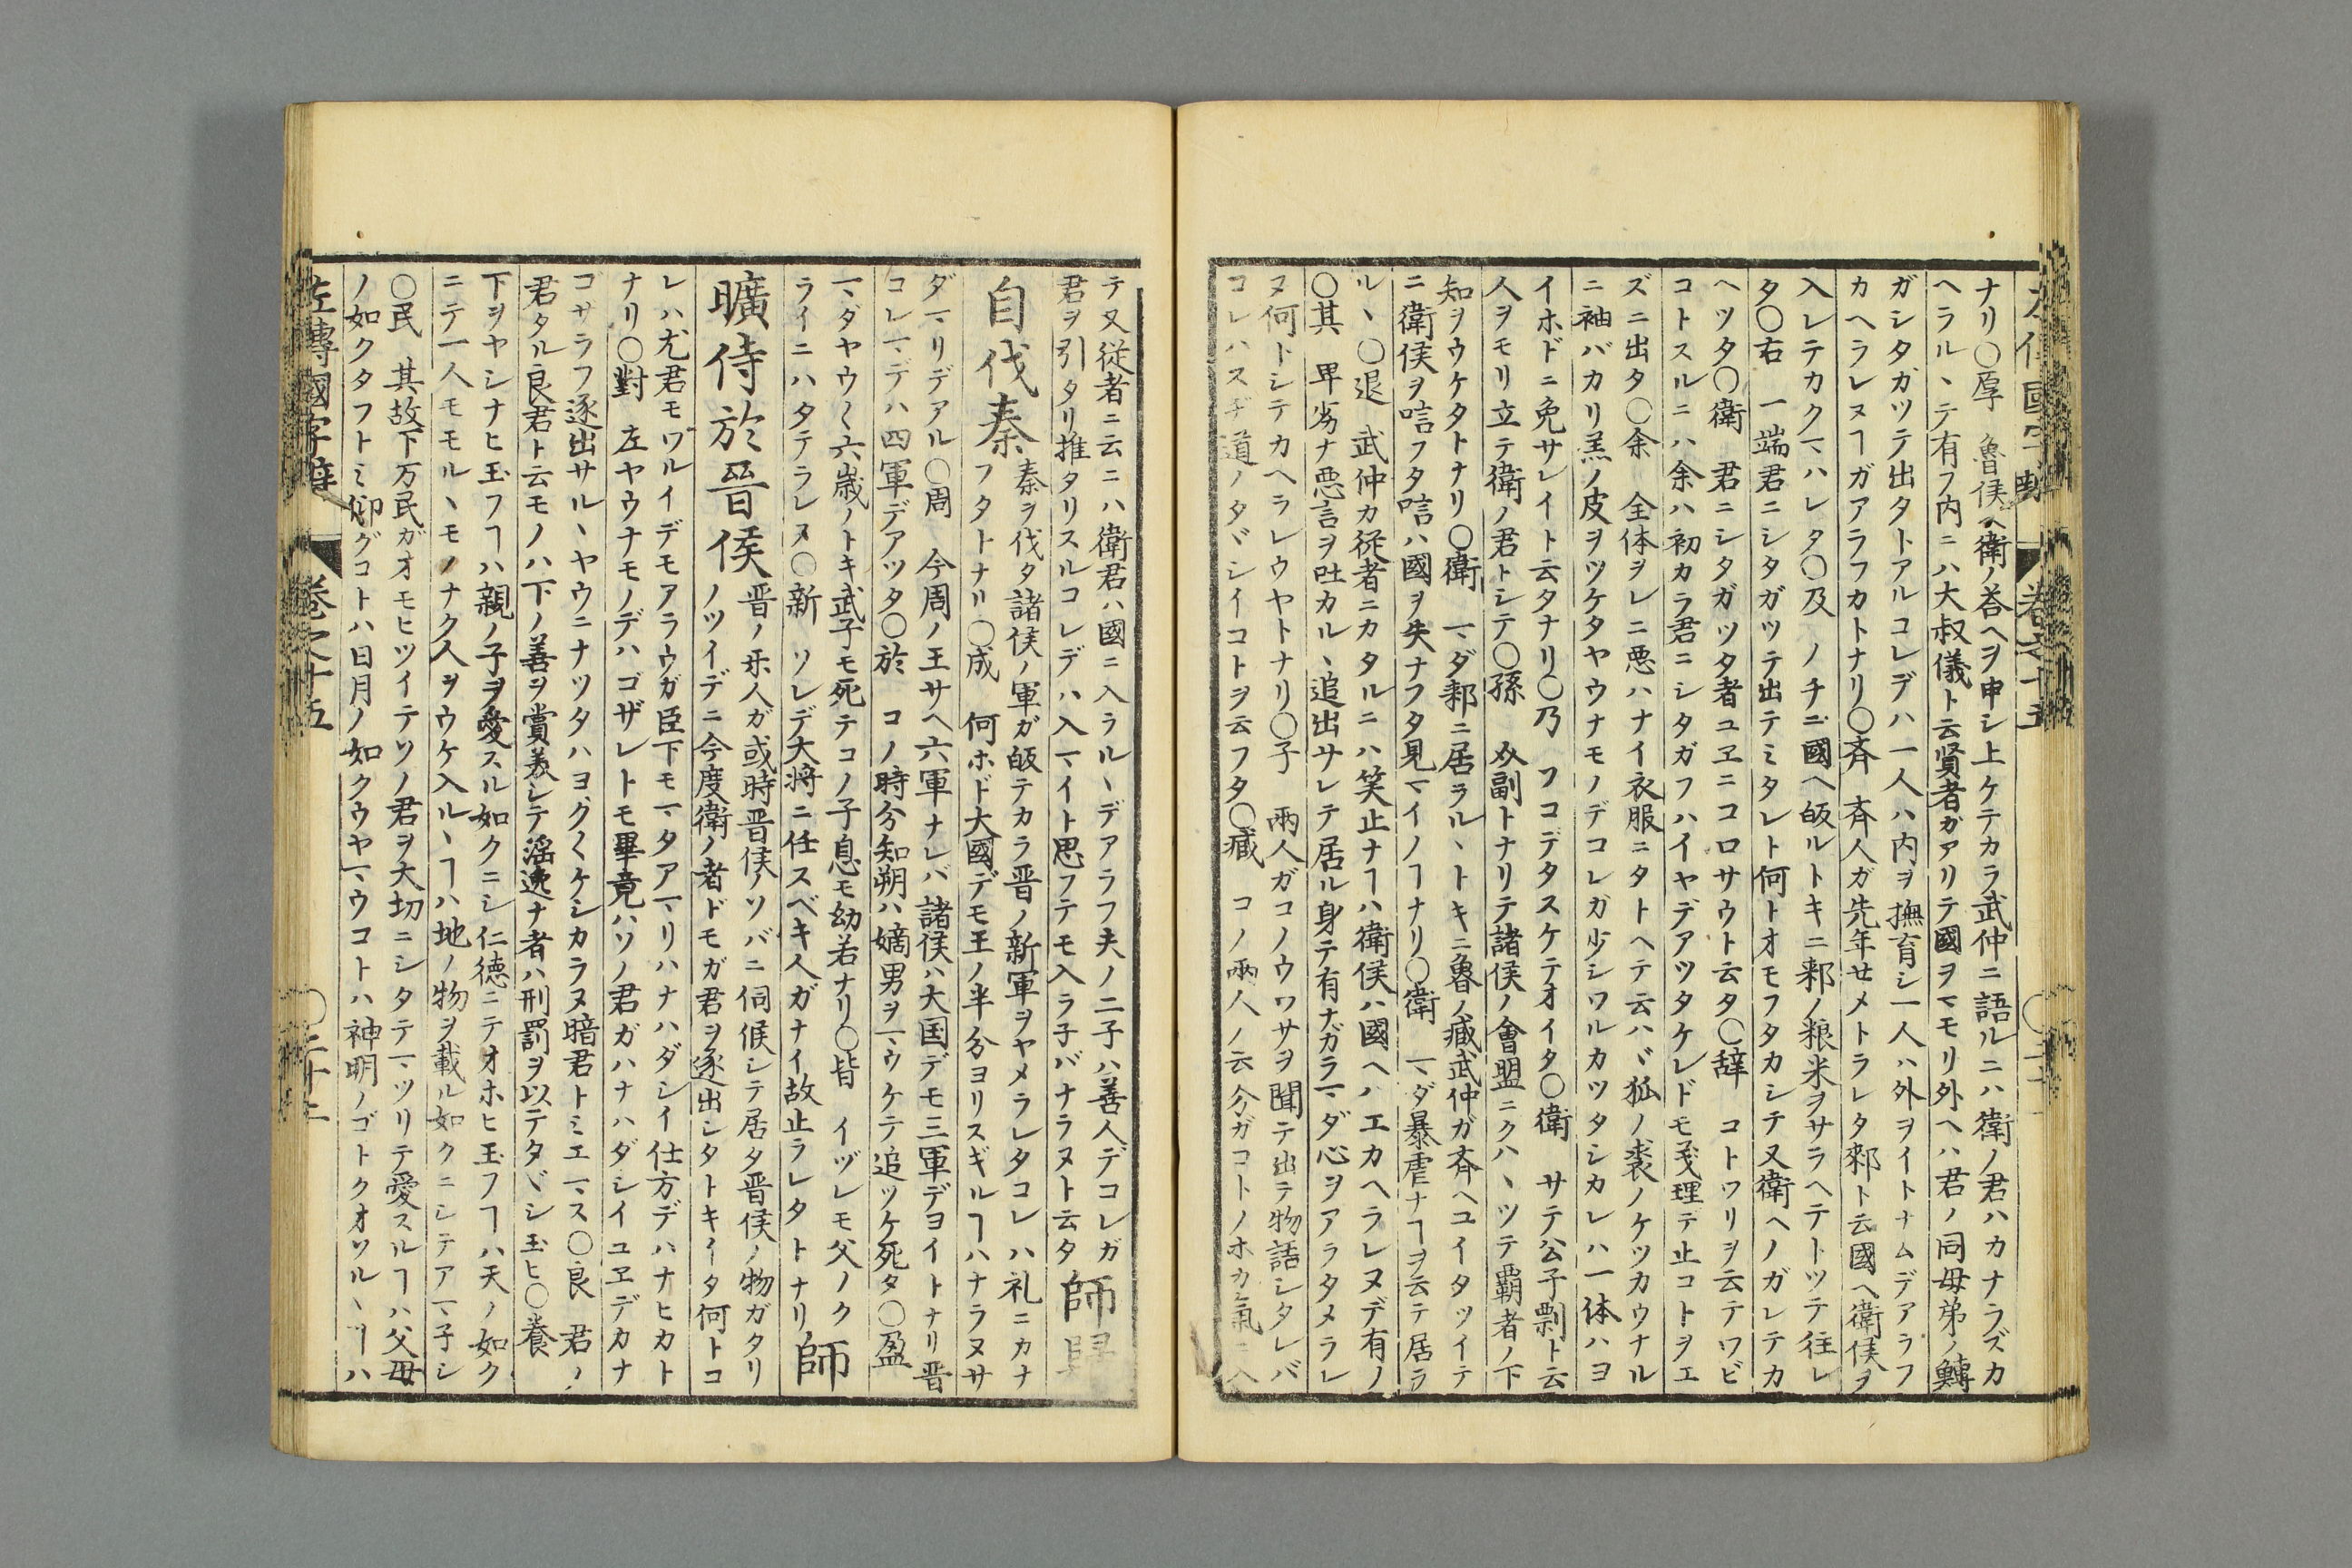 ナリ〇厚　魯侯ヘ衛ノ荅ヘヲ申シ上ケテカラ武仲ニ語ルニハ衛ノ君ハカナラズカ
ヘラルヽテ有フ内ニハ大叔儀ト云賢者ガアリテ國ヲマモリ外ヘハ君ノ同母弟ノ鱄
ガシタガツテ出タトアルコレデハ一人ハ内ヲ撫育シ一人ハ外ヲイトナムデアラフ
カヘラレヌヿガアラフカトナリ〇斉　斉人ガ先年せメトラレタ郲ト云國ヘ衛侯ヲ
入レテカクマハレタ〇及　ノチニ國ヘ皈ルトキニ郲ノ粮米ヲサラヘテトツテ往レ
タ〇右　一端君ニシタガツテ出テミタレト何トオモフタカシテ又衛ヘノガレテカ
ヘツタ〇衛　君ニシタガツタ者ユヱニコロサウト云タ〇辞　コトワリヲ云テワビ
コトスルニハ余ハ初カラ君ニシタガフハイヤデアツタケレドモ理テ止コトヲエ
ズニ出タ〇余　全体ヲレニ悪ハナイ衣服ニタトヘテ云ハヾ狐ノ裘ノケツカウナル
ニ袖バカリ羔ノ皮ヲツケタヤウナモノデコレガ少シワルカツタシカレハ一体ハヨ
イホドニ免サレイト云タナリ〇乃　フコデタスケテオイタ〇衛　サテ公子剽ト云
人ヲモリ立テ衛ノ君トシテ〇孫　双副トナリテ諸侯ノ會盟ニクハヽツテ覇者ノ下
知ヲウケタトナリ〇衛　マダ郲ニ居ラルヽトキニ魯ノ臧武仲ガ斉ヘユイタツイテ
ニ衛侯ヲ唁フタ唁ハ國ヲ失ナフタ見マイノヿナリ〇衛　マダ暴虐ナヿヲ云テ居ラ
ルヽ〇退　武仲カ従者ニカタルニハ笑止ナヿハ衛侯ハ國ヘハエカヘラレヌデ有ノ
〇其　卑劣ナ悪言ヲ吐カルヽ追出サレテ居ル身テ有ナガラマダ心ヲアラタメラレ
ヌ何トシテカヘラレウヤトナリ〇子　兩人ガコノウワサヲ聞テ出テ物語シタレバ
コレハスヂ道ノタヾシイコトヲ云フタ〇臧　コノ兩人ノ云分ガコトノホカ氣ニ入
テ又従者ニ云ニハ衛君ハ國ニ入ラルヽデアラフ夫ノ二子ハ善人デコレガ
君ヲ引タリ推タリスルコレデハ入マイト思フテモ入ラ子バナラヌト云タ師歸
自伐秦　秦ヲ伐タ諸侯ノ軍ガ皈テカラ晋ノ新軍ヲヤメラレタコレハ礼ニカナ
フタトナリ〇成　何ホド大國デモ王ノ半分ヨリスギルヿハナラヌサ
ダマリデアル〇周　今周ノ王サヘ六軍ナレバ諸侯ハ大国デモ三軍デヨイトナリ晋
コレマデハ四軍デアツタ〇於　コノ時分知朔ハ嫡男ヲマウケテ追ツケ死タ〇盈
マダヤウ〱六歳ノトキ武子モ死テコノ子息モ幼若ナリ〇皆　イヅレモ父ノク
ライニハタテラレヌ〇新　ソレデ大将ニ任スベキ人ガナイ故止ラレタトナリ師
曠侍於晉侯　晋ノ樂人ガ或時晋侯ノソバニ伺候シテ居タ晋侯ノ物ガタリ
ノツイデニ今度衛ノ者ドモガ君ヲ逐出シタトキイタ何トコ
レハ尤君モワルイデモアラウガ臣下モマタアマリハナハダシイ仕方デハナヒカト
ナリ〇對　左ヤウナモノデハゴザレトモ畢竟ハソノ君ガハナハダシイユヱデカナ
コサラフ逐出サルヽヤウニナツタハヨグ〱ケシカラヌ暗君トミエマス〇良　君ノ
君タル良君ト云モノハ下ノ善ヲ賞シテ淫逸ナ者ハ刑罰ヲ以テタヾシ玉ヒ〇養
下ヲヤシナヒ玉フヿハ親ノ子ヲ愛スル如クニシ仁徳ニテオホヒ玉フヿハ天ノ如ク
ニテ一人モモルヽモノナク人ヲウケ入ルヽヿハ地ノ物ヲ載ル如クニシテアマ子シ
〇民　其故下万民ガオモヒツイテソノ君ヲ大切ニシタテマツリテ愛スルヿハ父母
ノ如クタフトミ仰グコトハ日月ノ如クウヤマウコトハ神明ノゴトクオソルヽヿハ
左傳國字辯　卷之十五　〇二十二